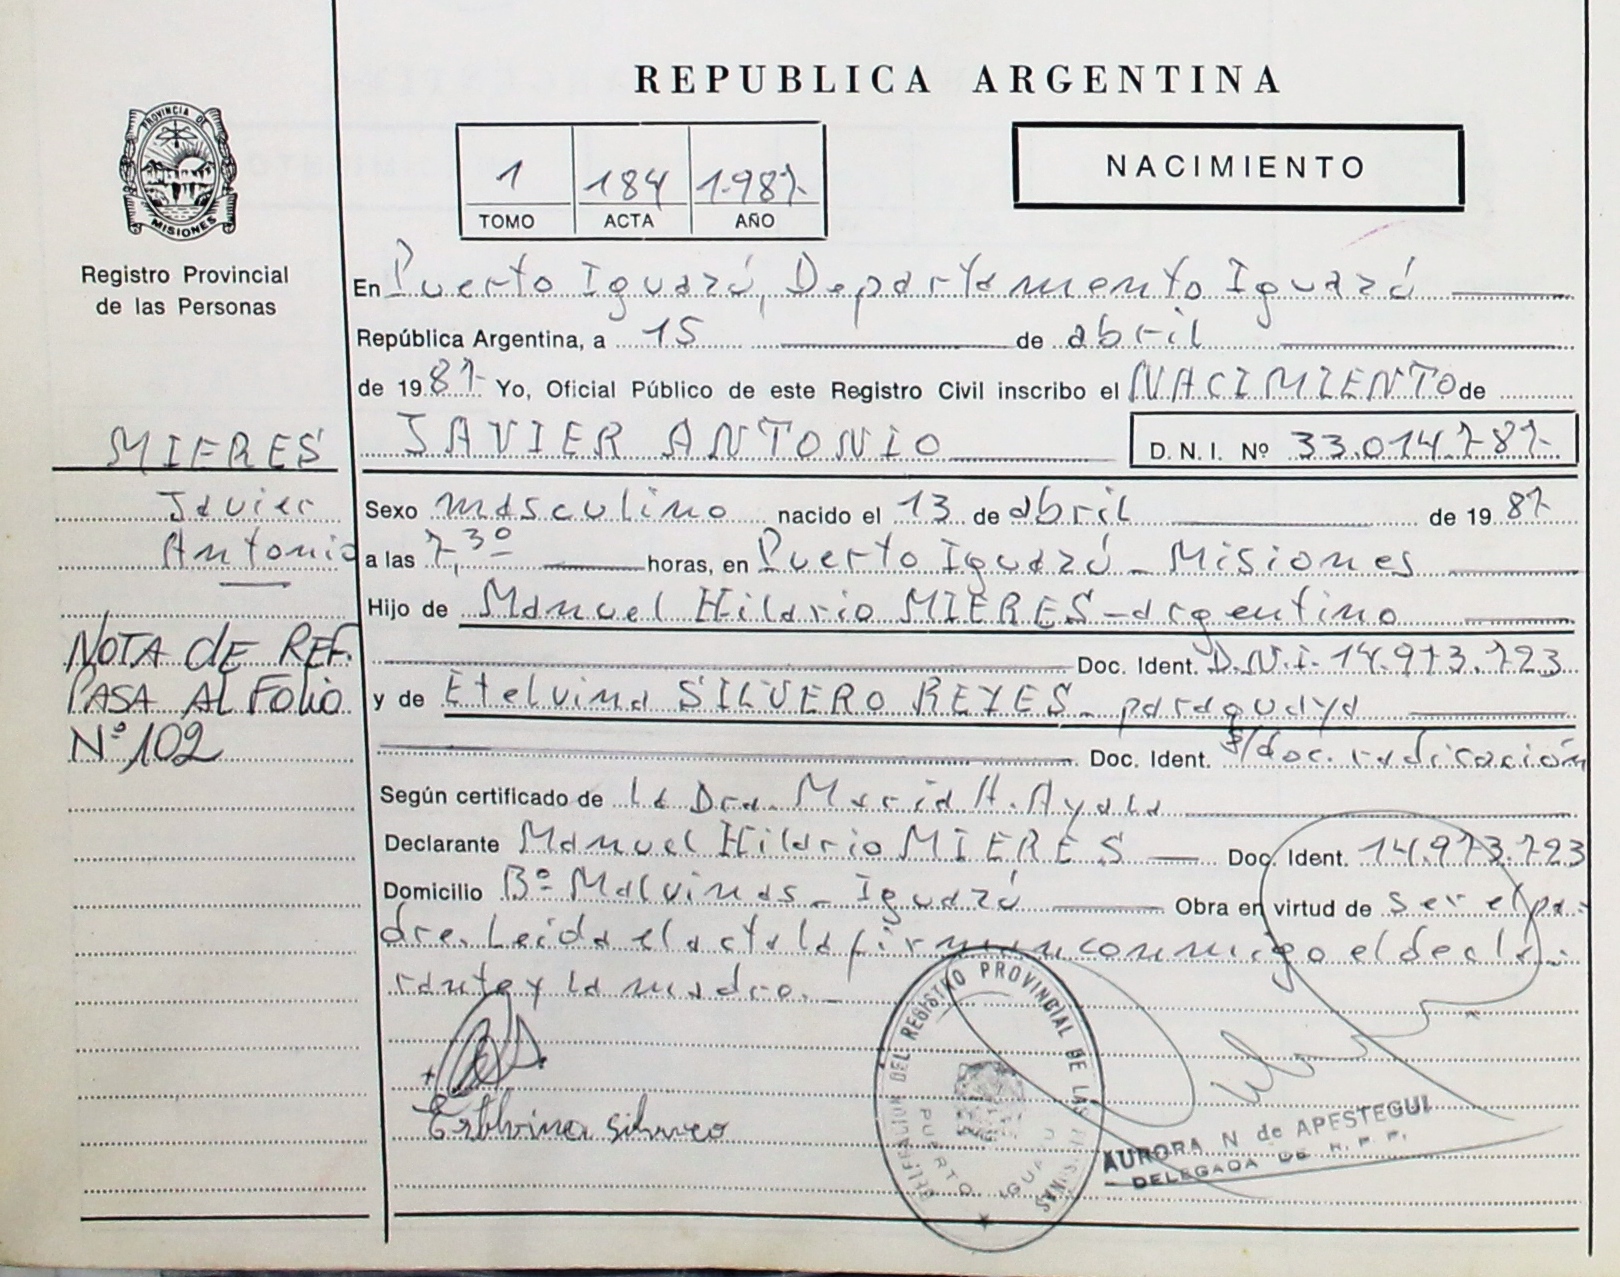 REPUBLICA ARGENTINA
PROVINCIA DE
MISIONES
Registro Provincial
de las Personas
1 184 1.987
TOMO ACTA AÑO
NACIMIENTO
En Puerto Iguazú, Departamento Iguazú
República Argentina, a 15 de abril
de 1987 Yo, Oficial Público de este Registro Civil inscribo el NACIMIENTO de
JAVIER ANTONIO D. N. I. Nº 33.014.787
MIERES
Javier
Antonio
Sexo masculino nacido el 13 de abril de 1987
a las 7,30 horas, en Puerto Iguazú - Misiones
Hijo de Manuel Hilario MIERES - argentino
Doc. Ident. D.N.I. 14.973.723
y de Etelvina SILVERO REYES - paraguaya
Doc. Ident. s/doc. radicación
NOTA DE REF.
PASA AL FOLIO
Nº 102
Según certificado de la Dra. María H. Ayala
Declarante Manuel Hilario MIERES Doc. Ident. 14.973.723
Domicilio Bº Malvinas - Iguazú Obra en virtud de ser el pa-
dre. Leida el acta la firman conmigo el decla-
rante y la madre.
DELEGACION DEL REGISTRO PROVINCIAL DE LAS PERSONAS
PUERTO IGUAZU
AURORA N de APESTEGUI
DELEGADA DE R. P. P.